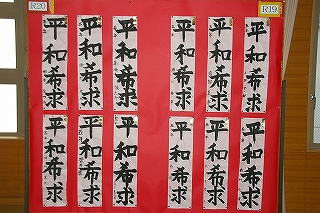 R20
R19
平和希求
平和希求
平和希求
平和希求
平和希求
平和希求
平和希求
平和希求
平和希求
平和希求
平和希求
平和希求